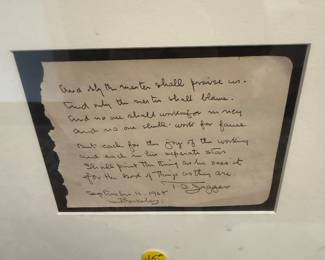 And only the master shall praise us.
And only the master shall blame.
And no one shall work for money
and no one shall work for fame
But each for the joy of the working
and each in his separate star
Shall paint the thing as he sees it
for the God of things as they are.
September
Berkeley.